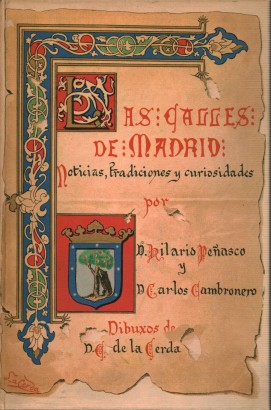 LAS: CALLES:
DE: MADRID:
Noticias, tradiciones y curiosidades
por
D. Hilario Peñasco
y
D. Carlos Cambronero
Dibuxos de
D. G. de la Cerda